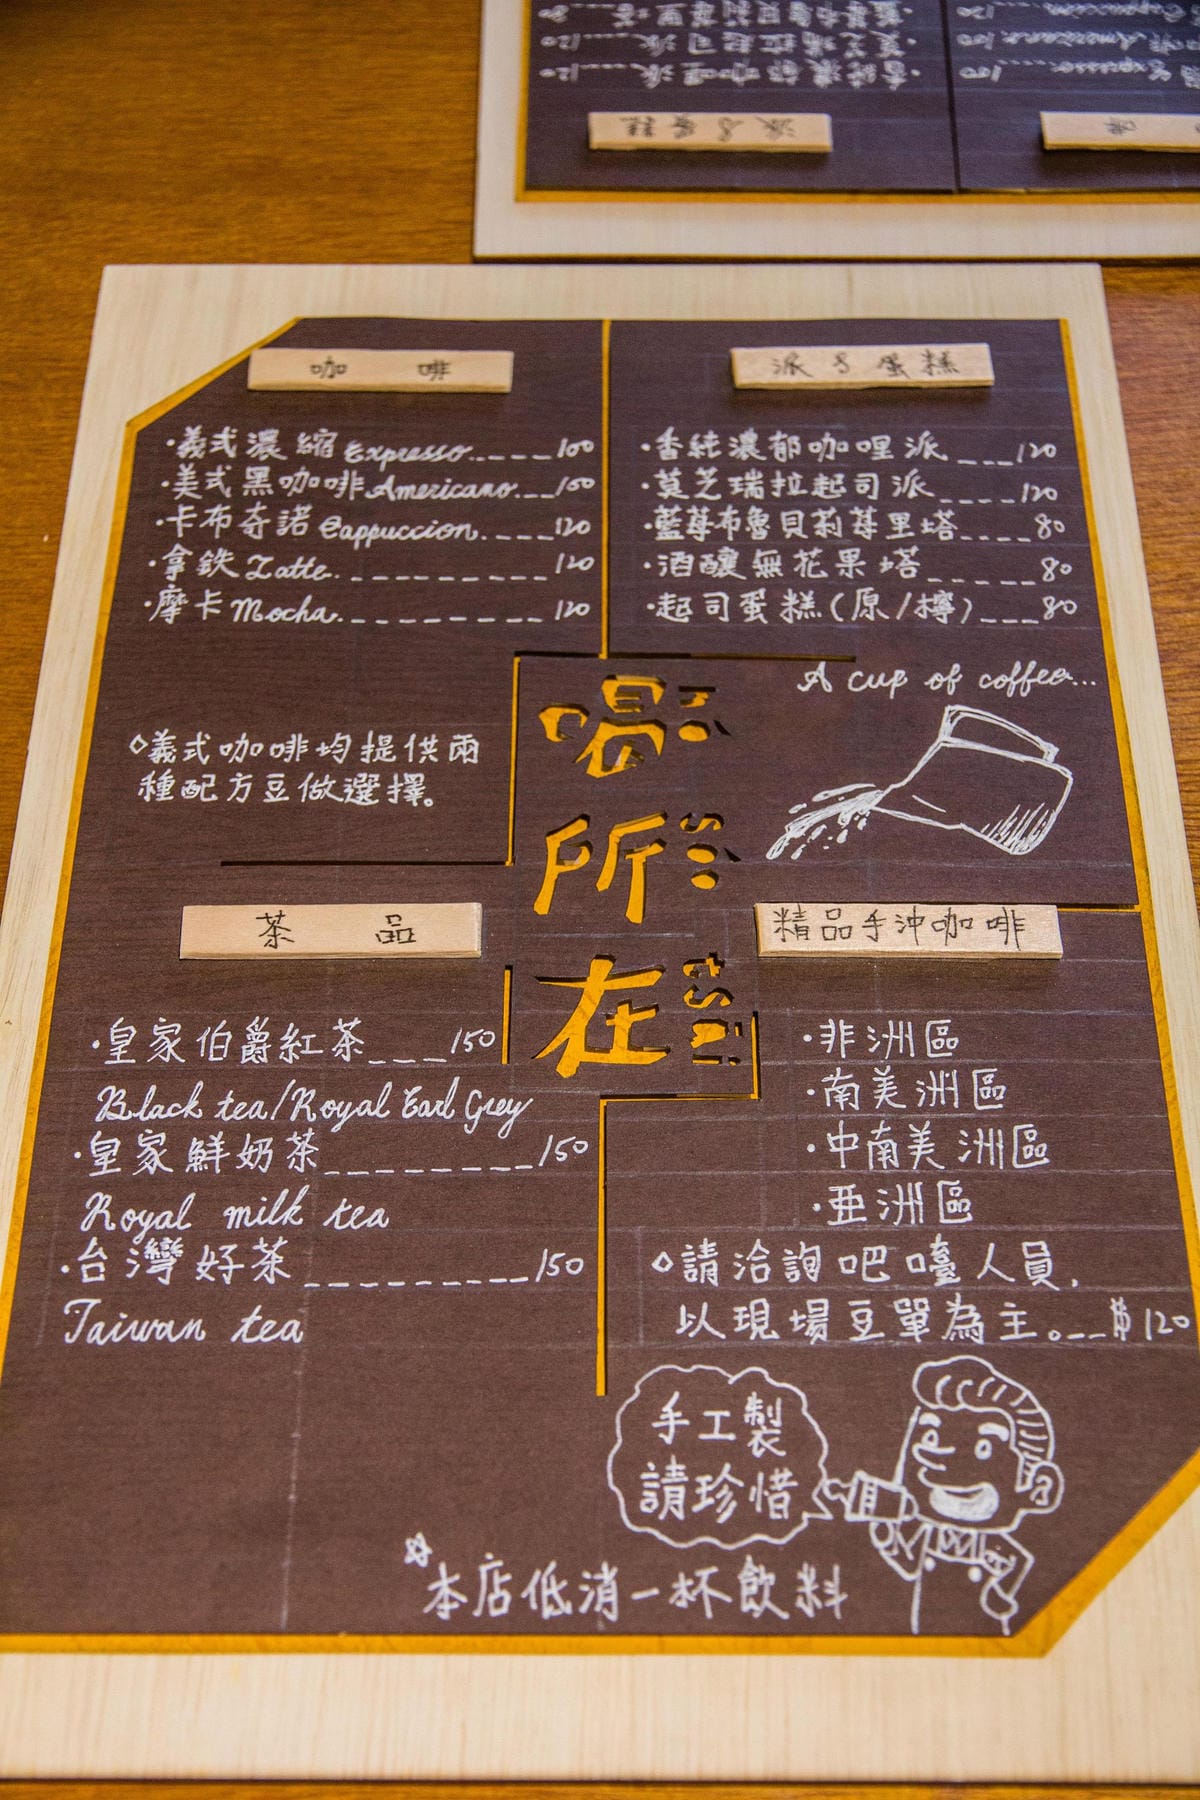 咖 啡
·義式濃縮 Expresso.____100
·美式黑咖啡 Americano.__100
·卡布奇諾 Cappuccion.____120
·拿鉄 Latte.__________120
·摩卡 Mocha.__________120
◇義式咖啡均提供兩
種配方豆做選擇。
派&蛋糕
·香純濃郁咖哩派___120
·莫芝瑞拉起司派____120
·藍莓布魯貝莉莓里塔____80
·酒釀無花果塔_____80
·起司蛋糕(原/檸)___80
A cup of coffee...
喝
所
在
茶 品
·皇家伯爵紅茶___150
Black tea/Royal Earl Grey
·皇家鮮奶茶________150
Royal milk tea
·台灣好茶_________150
Taiwan tea
精品手沖咖啡
·非洲區
·南美洲區
·中南美洲區
·亞洲區
◇請洽詢吧嚧人員,
以現場豆單為主。__$120
手工製
請珍惜
☆本店低消一杯飲料